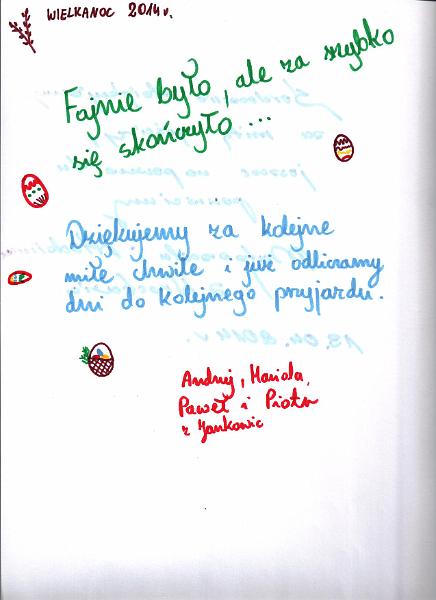 WIELKANOC 2014 r.
Fajnie było, ale za szybko
się skończyło ...
Dziękujemy za kolejne
miłe chwile i już odliczamy
dni do kolejnego przyjazdu.
Andrzej, Mariola,
Paweł i Piotr
z Jankowic
13.04.2014 r.